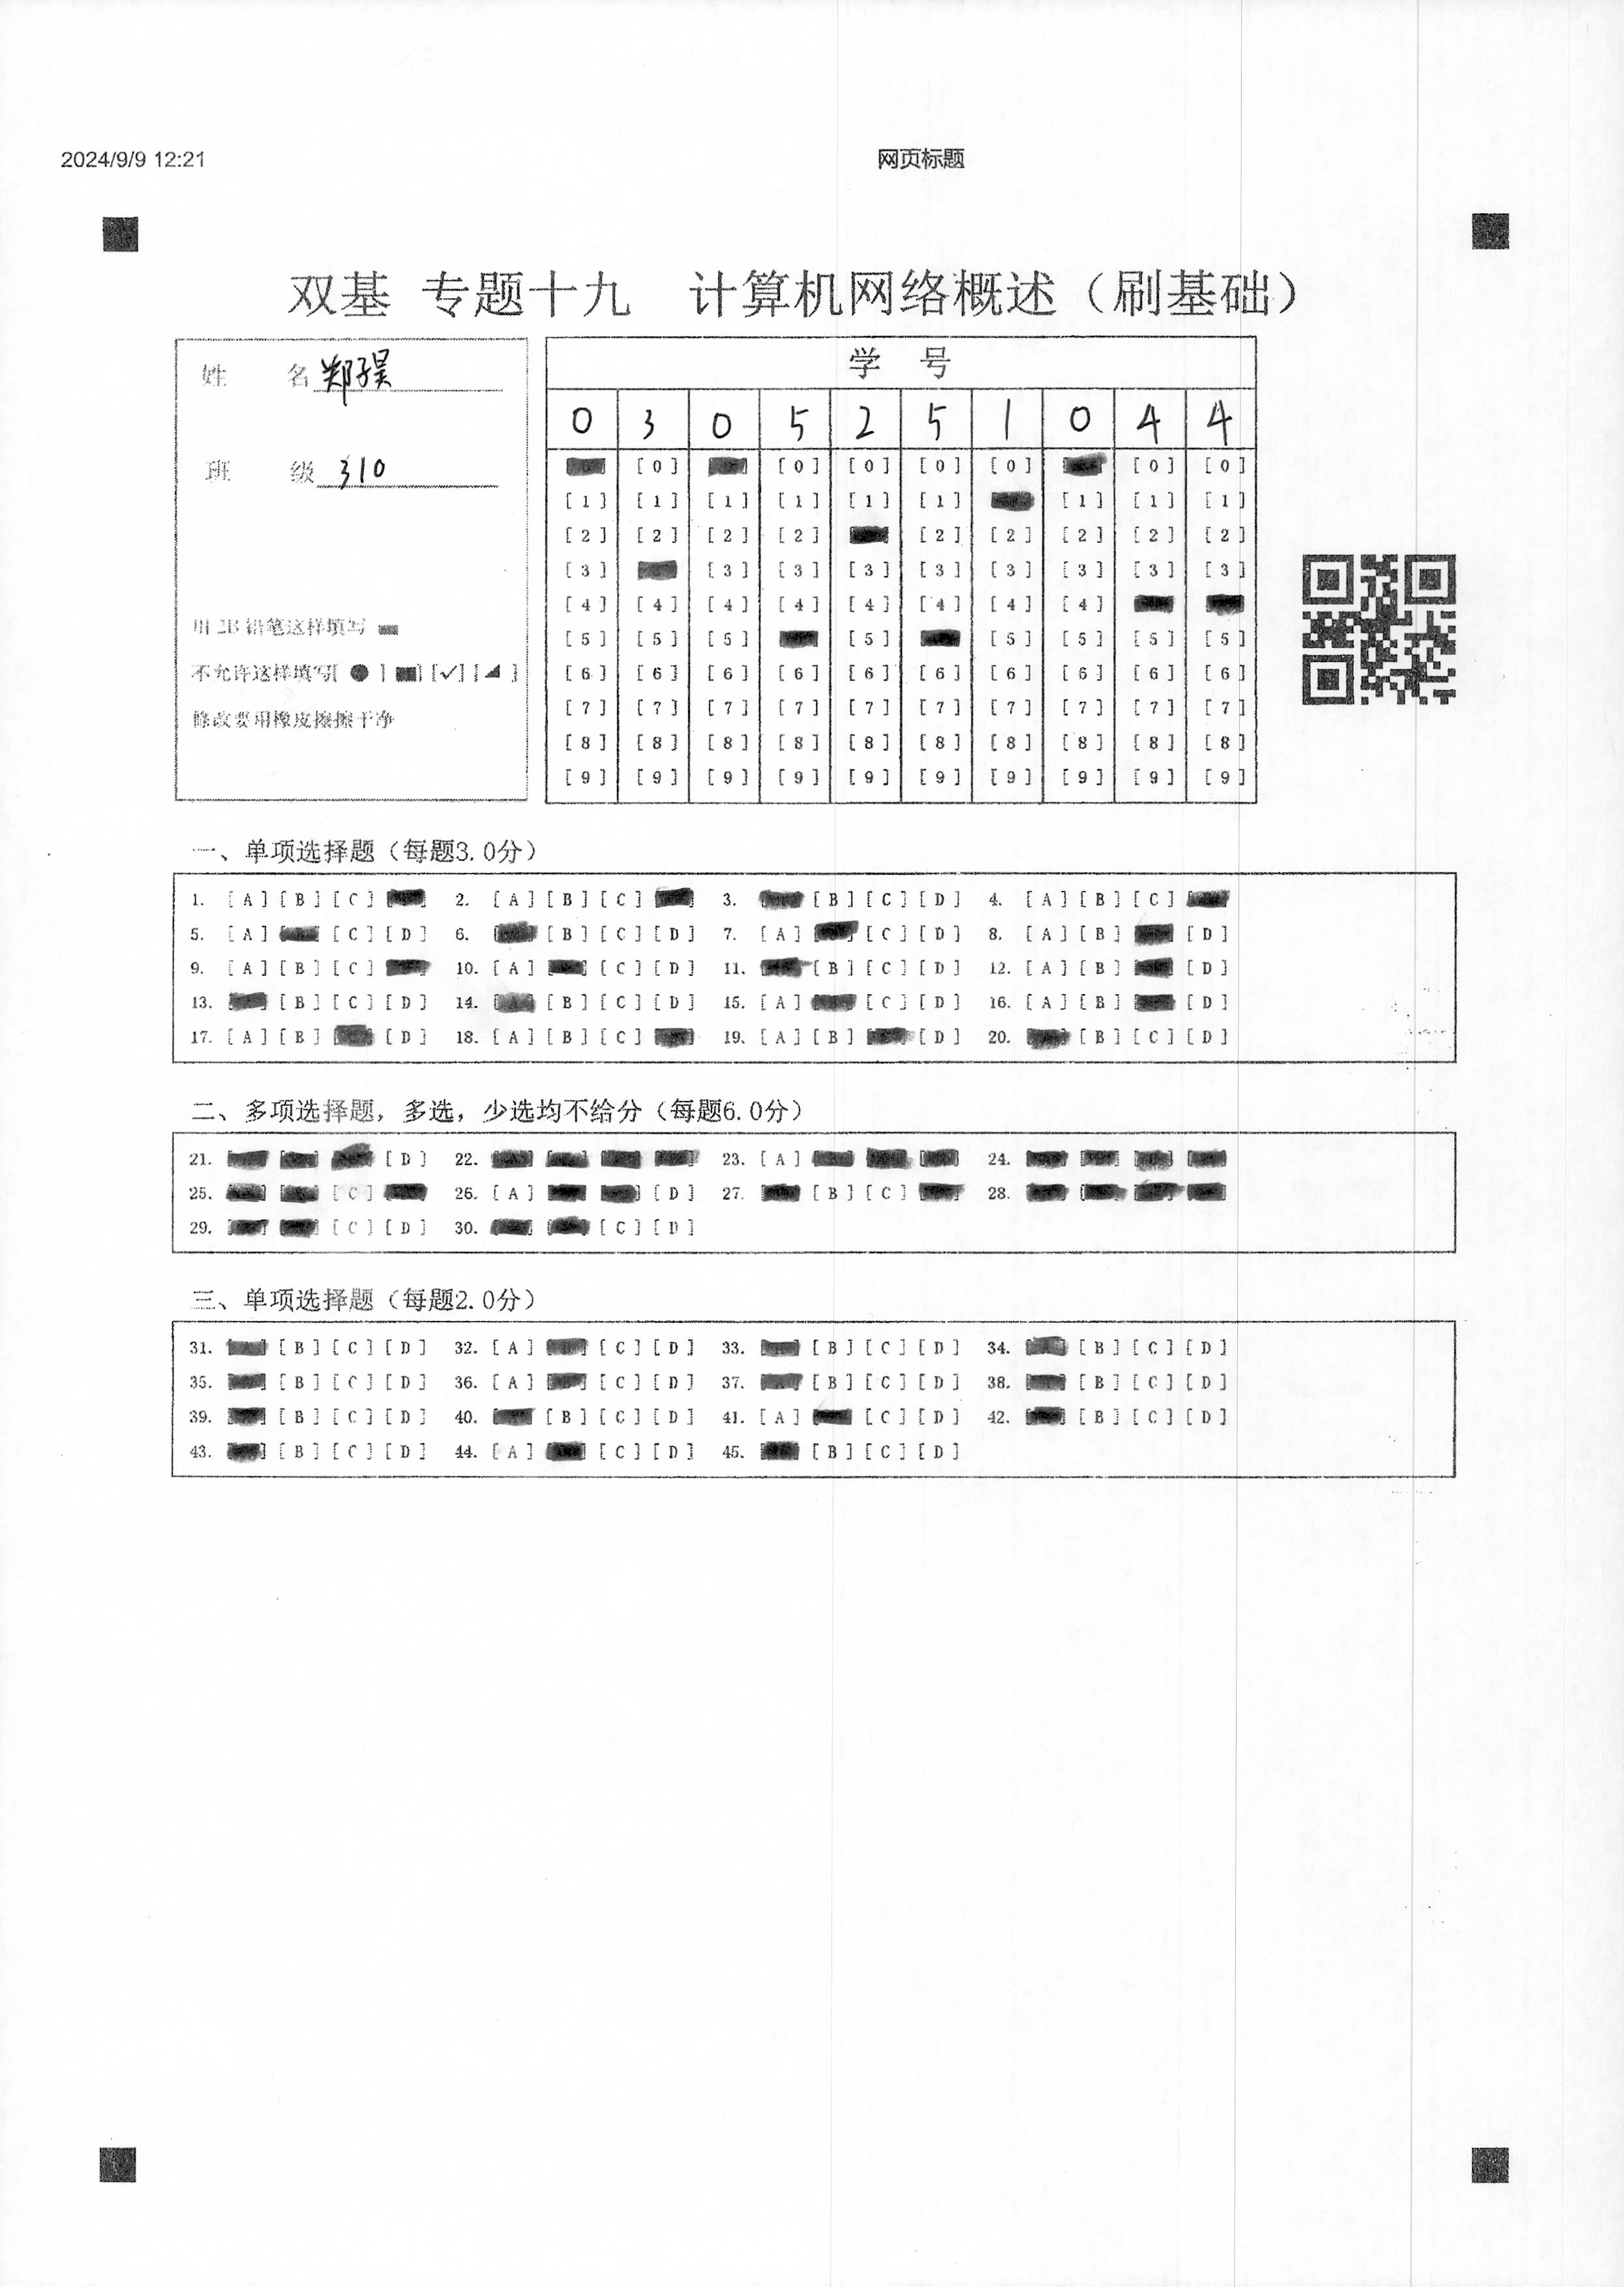 2024/9/9 12:21 网页标题
双基 专题十九 计算机网络概述（刷基础）
姓 名 郑子昊
班 级 310
用 2B 铅笔这样填写
不允许这样填写[ ● ] [■] [✓] [◢ ]
修改要用橡皮擦擦干净
学 号
0 3 0 5 2 5 1 0 4 4
[0] [0] [0] [0] [0] [0] [0]
[1] [1] [1] [1] [1] [1] [1] [1] [1]
[2] [2] [2] [2] [2] [2] [2] [2] [2]
[3] [3] [3] [3] [3] [3] [3] [3] [3]
[4] [4] [4] [4] [4] [4] [4] [4]
[5] [5] [5] [5] [5] [5] [5] [5]
[6] [6] [6] [6] [6] [6] [6] [6] [6] [6]
[7] [7] [7] [7] [7] [7] [7] [7] [7] [7]
[8] [8] [8] [8] [8] [8] [8] [8] [8] [8]
[9] [9] [9] [9] [9] [9] [9] [9] [9] [9]
一、单项选择题（每题3.0分）
1. [A] [B] [C] 2. [A] [B] [C] 3. [B] [C] [D] 4. [A] [B] [C]
5. [A] [C] [D] 6. [B] [C] [D] 7. [A] [C] [D] 8. [A] [B] [D]
9. [A] [B] [C] 10. [A] [C] [D] 11. [B] [C] [D] 12. [A] [B] [D]
13. [B] [C] [D] 14. [A] [B] [C] [D] 15. [A] [C] [D] 16. [A] [B] [D]
17. [A] [B] [D] 18. [A] [B] [C] 19. [A] [B] [D] 20. [B] [C] [D]
二、多项选择题，多选，少选均不给分（每题6.0分）
21. [D] 22. 23. [A] 24.
25. [C] 26. [A] [D] 27. [B] [C] 28.
29. [C] [D] 30. [C] [D]
三、单项选择题（每题2.0分）
31. [B] [C] [D] 32. [A] [C] [D] 33. [B] [C] [D] 34. [B] [C] [D]
35. [B] [C] [D] 36. [A] [C] [D] 37. [B] [C] [D] 38. [B] [C] [D]
39. [B] [C] [D] 40. [B] [C] [D] 41. [A] [C] [D] 42. [B] [C] [D]
43. [B] [C] [D] 44. [A] [C] [D] 45. [B] [C] [D]